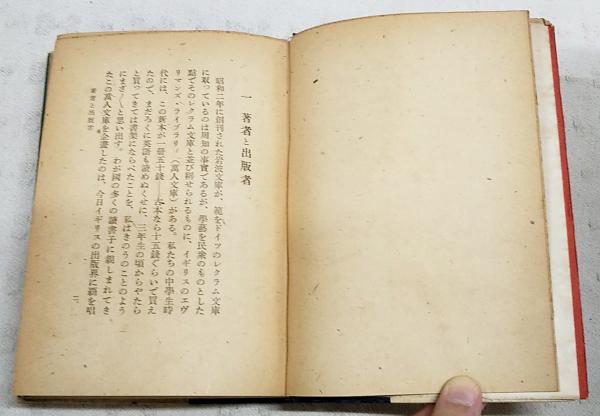 一 著者と出版者
昭和二年に創刊された岩波文庫が、範をドイツのレクラム文庫
に取っているのは周知の事實であるが、學藝を民衆のものとした
點でそのレクラム文庫と並び稱せられるものに、イギリスのエヴ
リマンズ・ライブラリィ(萬人文庫)がある。私たちの中學生時
代には、この新本が一冊五十錢――古本なら十五錢ぐらいで買え
たので、まだろくに英語も讀めぬくせに、三年生の頃からやたら
と買ってきては書架にならべたことを、私はきのうのことのよう
にまざ〳〵と思い出す。わが國の多くの讀書子に親しまれてき
たこの萬人文庫を企畫したのは、今日イギリスの出版界に覇を唱
著者と出版者